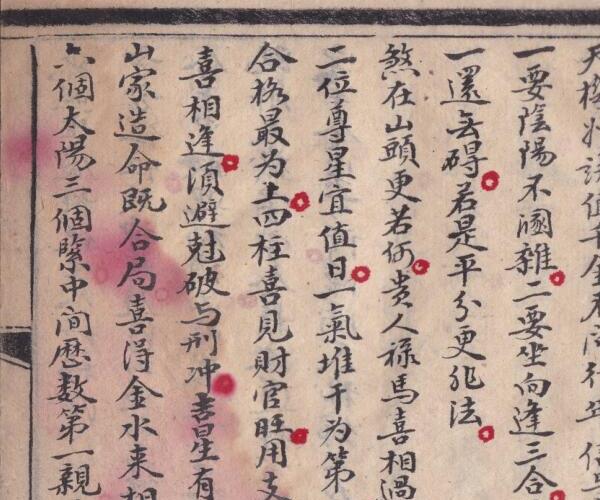 天機妙訣值千金
一要陰陽不溷雜二要坐向逢三合
一還无碍若是平分更非法
煞在山頭更若何贵人祿馬喜相過
二位尊星宜值日一氣堆干为第
合格最为上四柱喜見財官旺用支
喜相逢須避尅破与刑冲吉星有
山家造命既合局喜得金水来相
六個太陽三個緊中间歷数第一親